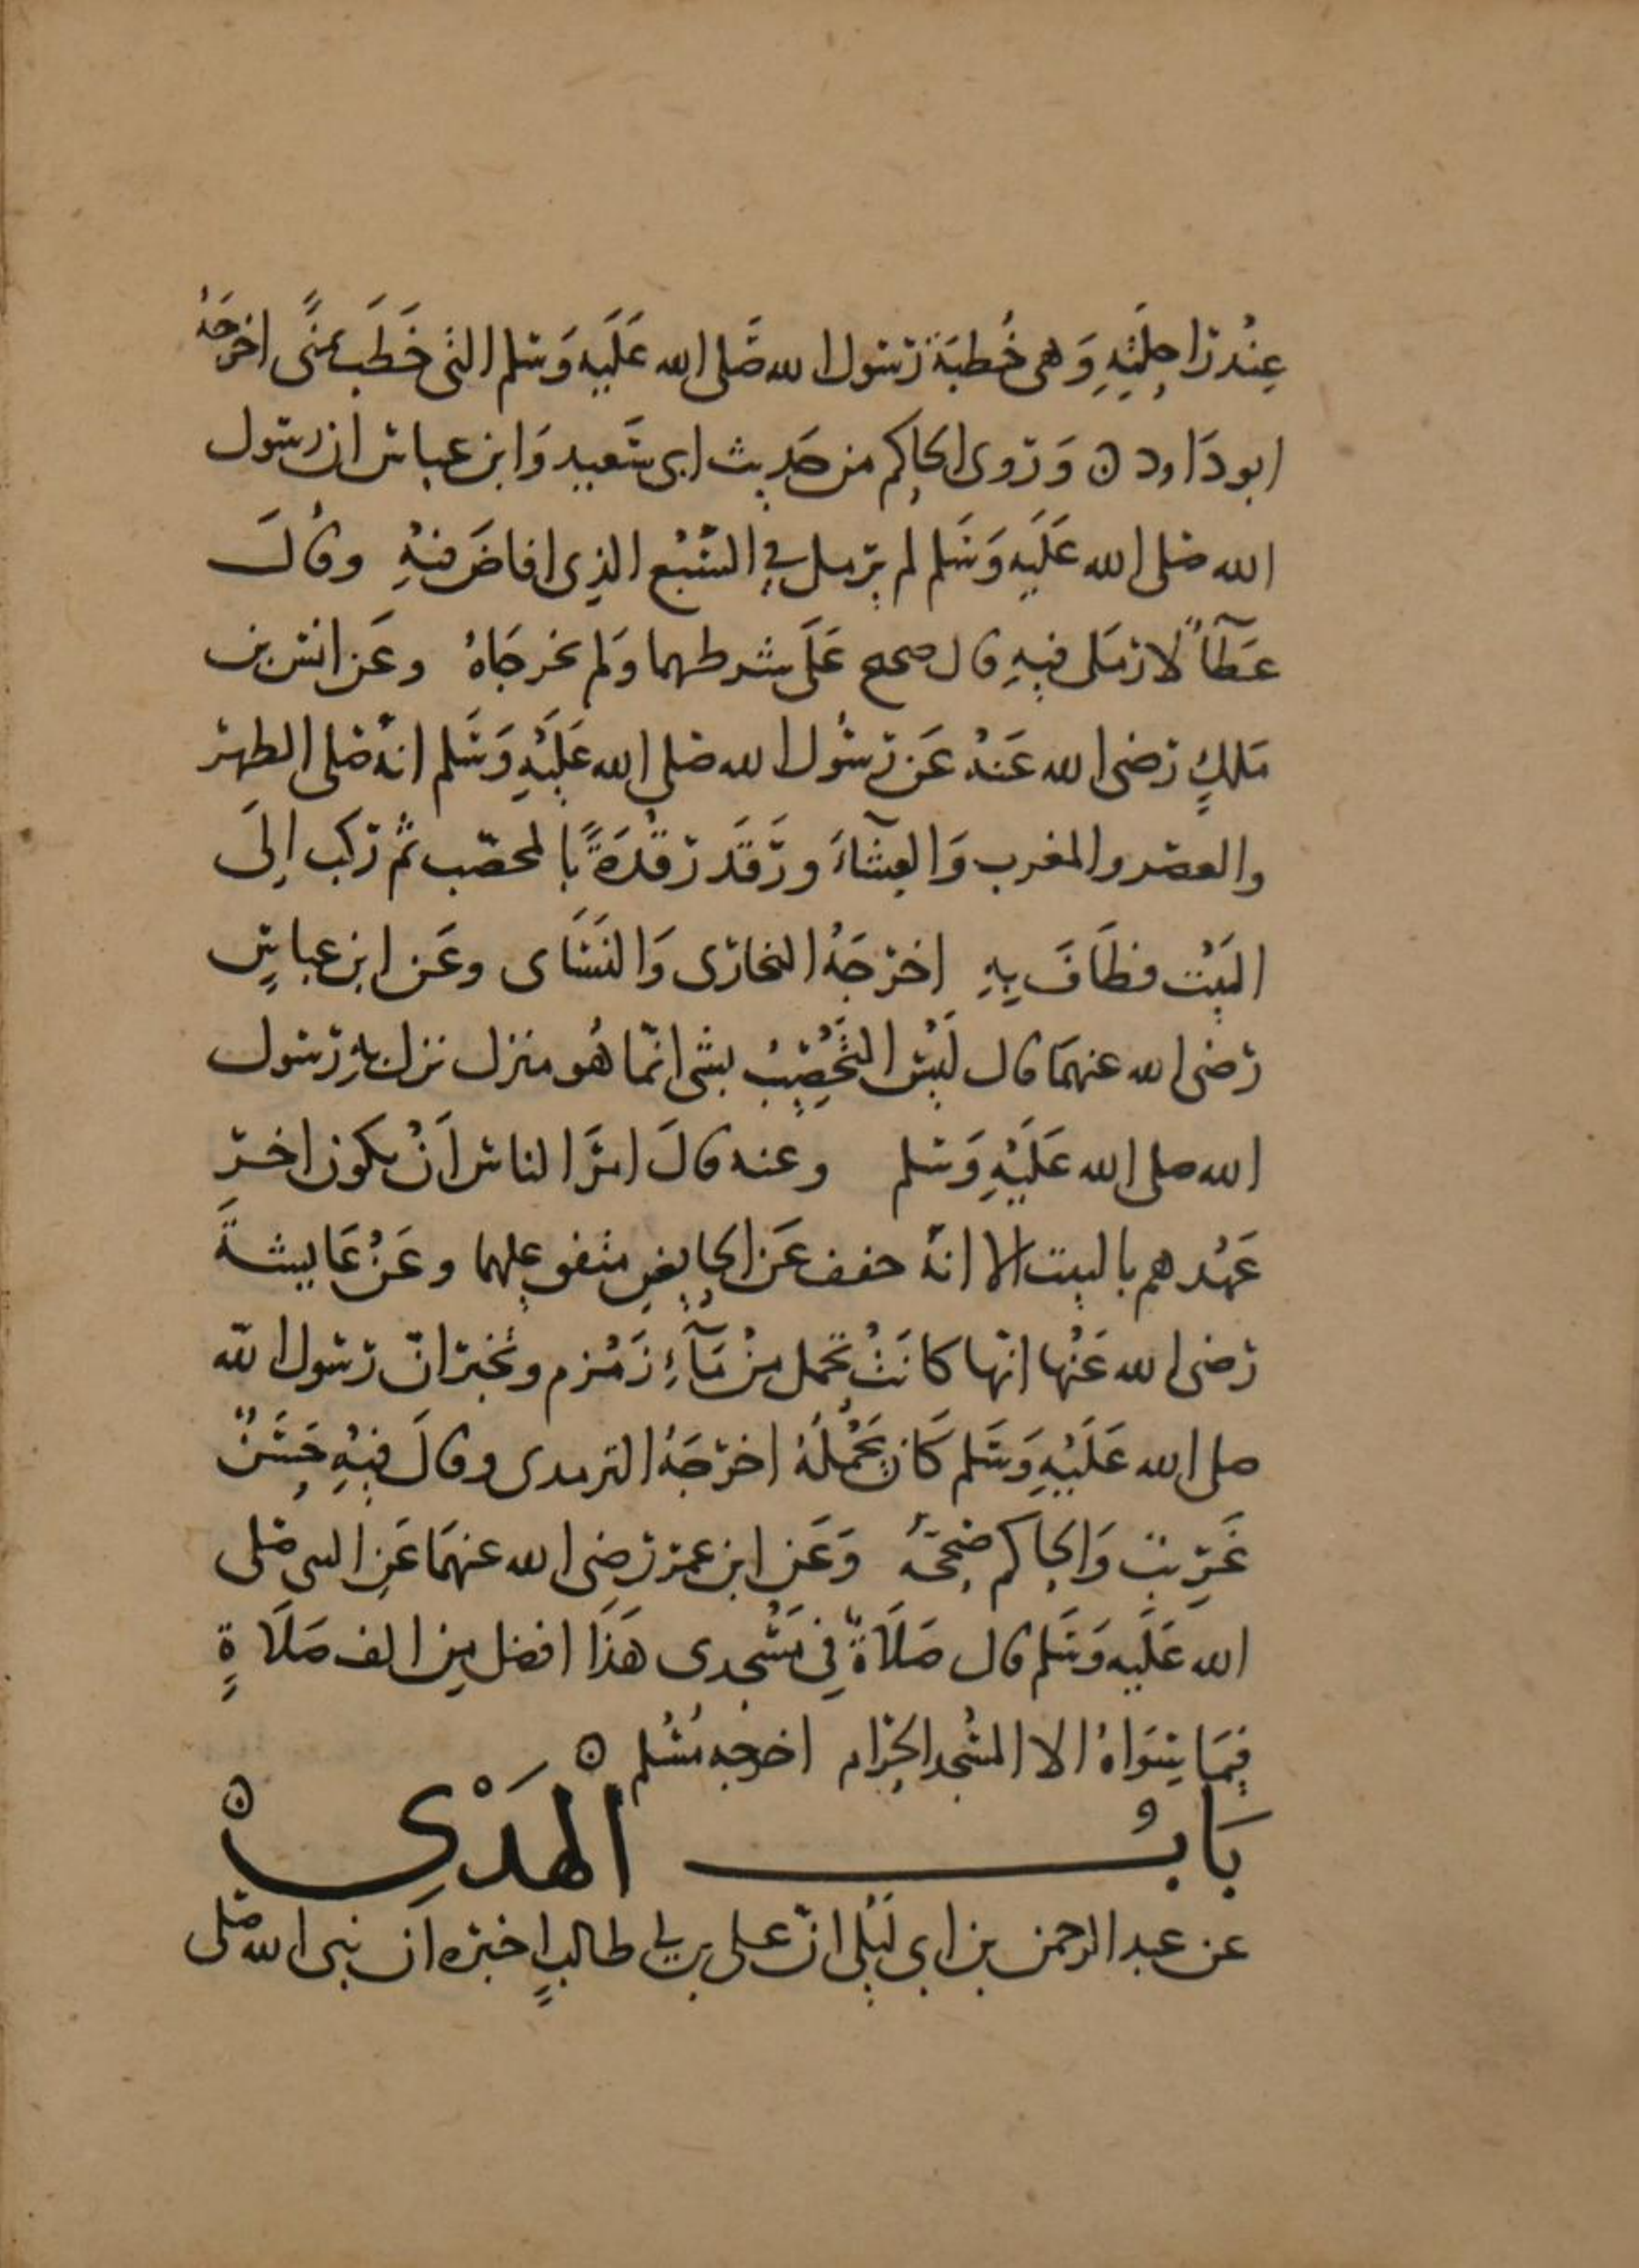 عِنْد رَاحِلَتِهِ وَهى خُطبَة رَسُول الله صَلى الله عَلَيه وَسَلم التى خَطَبَ بمنًى اخرَجَهُ
ابو دَاود ن وَرَوى الحاكم من حَديث ابى سَعيد وَابن عباس ان رسول
الله صَلى الله عَلَيه وَسَلم لم يرمل في السَّبْع الذِى افاضَ فيهِ وقالَ
عَطآءٌ لا رَمَل فيهِ قال صحيح عَلَى شرطهما وَلم يخرجَاهُ وعَن انس بن
مَلكٍ رَضى الله عَنهُ عَن رَسُول الله صَلى الله عَلَيْهِ وَسَلم انهُ صَلى الظهر
والعصر والمغرب وَالعِشَآءَ ورَقَد رَقْدَةً بالمحصّب ثم رَكب اِلَى
البَيْت فطَافَ بِهِ اخرَجَهُ البخارى وَالنسَاى وعَن ابن عباسٍ
رَضى الله عنهمَا قال لَيْسَ التحْصِيْبُ بشى انمّا هُو منزل نزل بهِ رَسول
الله صلى الله عَلَيْهِ وَسَلم وعنه قالَ امرَ الناس اَنْ يكون اخر
عَهْدهم بالبيت الا انهُ خفف عَن الحايض متفق عليهما وعَنْ عَايشةَ
رَضى الله عَنْها انّها كانَتْ تحمل مِنْ مَآءِ زَمْزم وتخبر انّ رَسول الله
صلى الله عَلَيْهِ وَسَلم كَان يَحْمِلُهُ اخرجَهُ الترمدى وقالَ فيهِ حَسَنٌ
غَرِيبٌ وَالحاكم صَححَهُ وَعَن ابن عمر رَضِى الله عنهمَا عَنِ النبى صَلى
الله عَلَيه وَسَلم قال صَلَاةٌ فِي مَسْجِدى هَذَا افضل مِن الف صَلَاةٍ
فِيمَا سِوَاهُ الا المسْجد الحَرَام اخرجه مُسْلم ن
بَابُ الهَدْىِ ن
عن عبد الرحمن بن ابى لَيْلى انّ على بن ابى طالبٍ اخبره اَن نبى الله صَلى